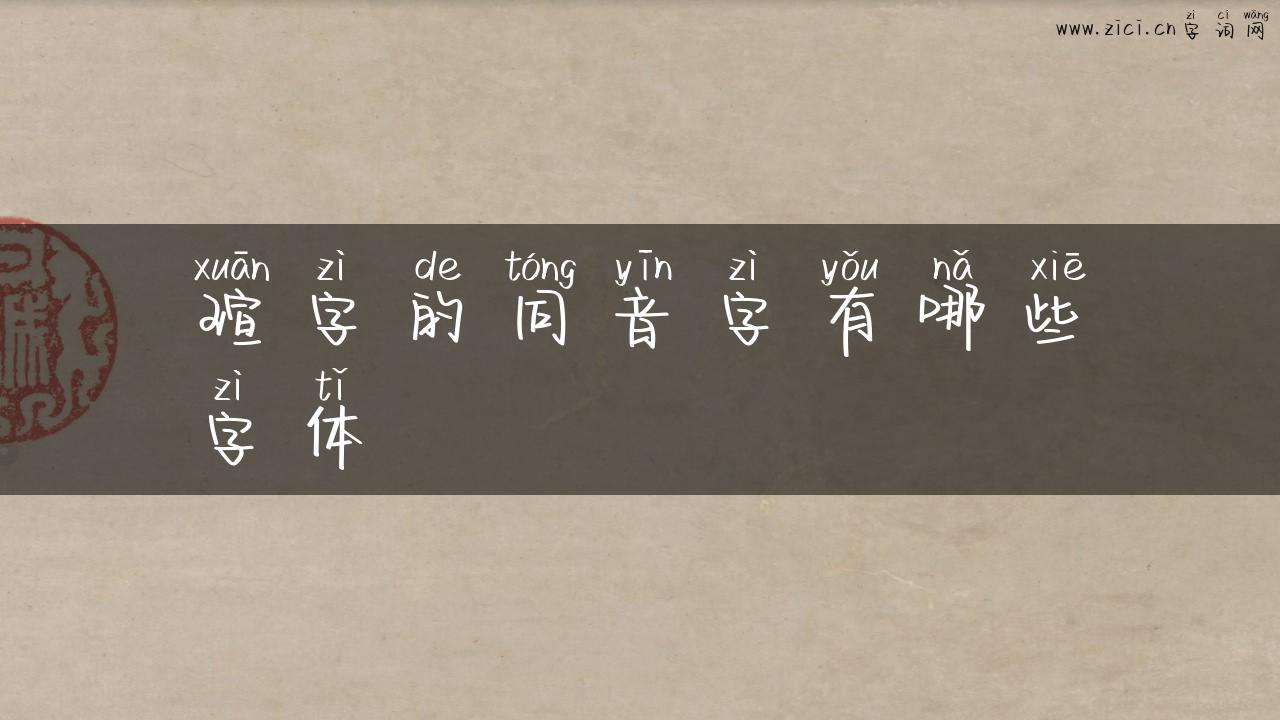 zì cí wǎng
www.zici.cn 字词网
xuān zì de tóng yīn zì yǒu nǎ xiē
瑄字的同音字有哪些
zì tǐ
字体